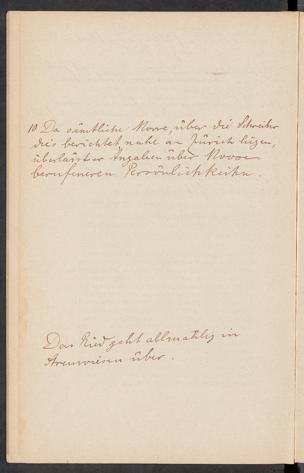 10 Da sämtliche Moore, über die Schreiber
dies berichtet, nahe an Zürich liegen,
überlässt er Angaben über Moore
berufeneren Persönlichkeiten.
Das Ried geht allmählig in
Streuwiesen über.